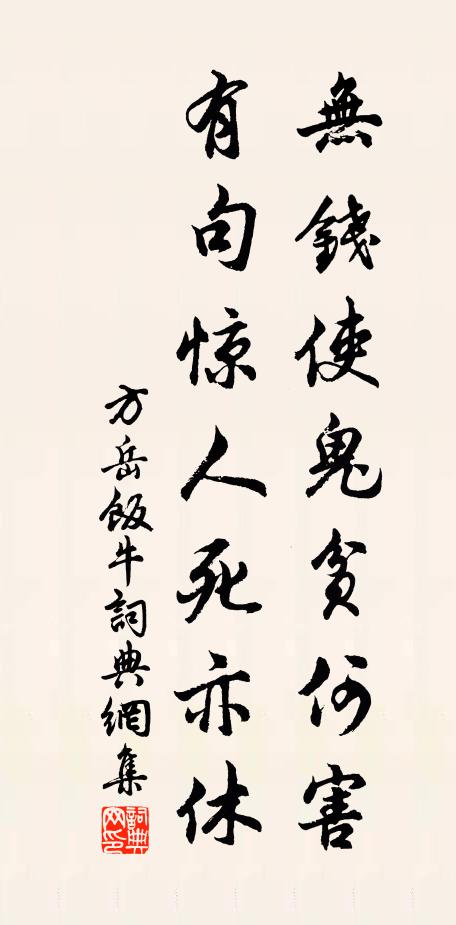 無錢使鬼貧何害
有句惊人死亦休
方岳飯牛詞典網集
詞典网印